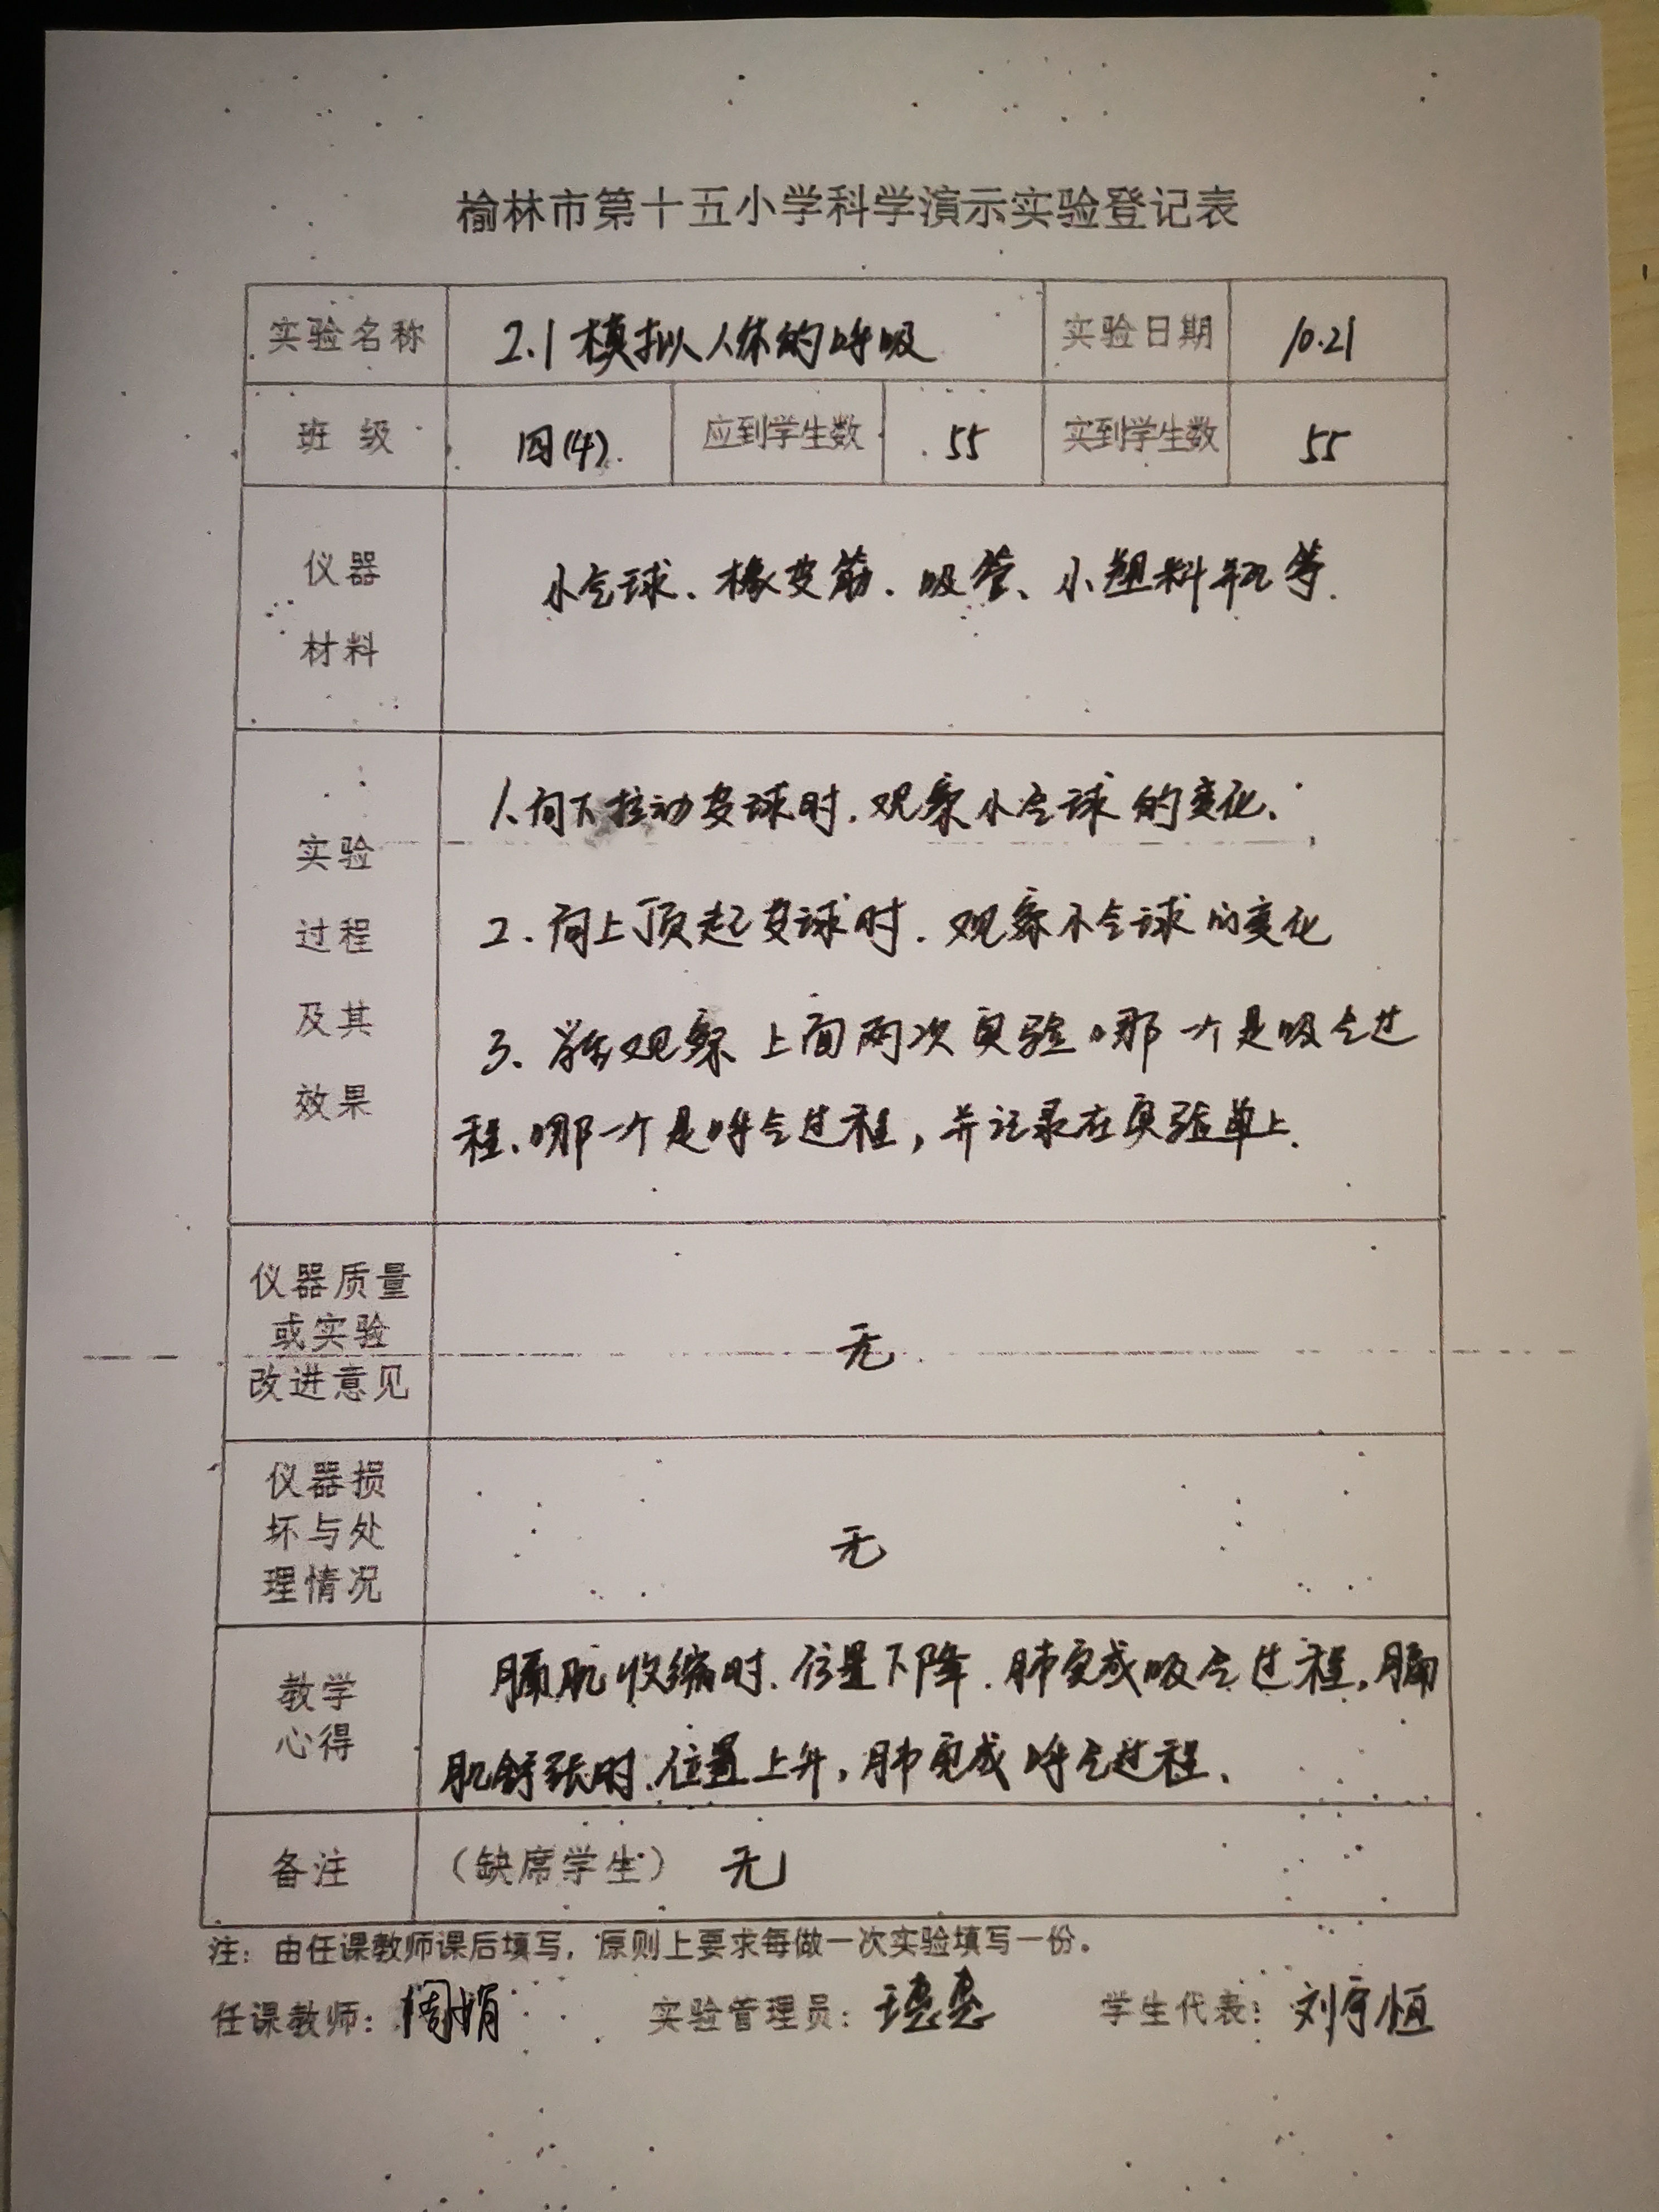 榆林市第十五小学科学演示实验登记表
实验名称 2.1模拟人体的呼吸 实验日期 10.21
班 级 四(4). 应到学生数 55 实到学生数 55
仪器
材料
小气球、橡皮筋、吸管、小塑料瓶等.
实验
过程
及其
效果
1.向下拉动皮球时.观察小气球的变化.
2.向上顶起皮球时.观察小气球的变化
3.学生观察上面两次实验哪一个是吸气过
程、哪一个是呼气过程,并记录在实验单上.
仪器质量
或实验
改进意见
无
仪器损
坏与处
理情况
无
教学
心得
膈肌收缩时.位置下降.肺完成吸气过程,膈
肌舒张时.位置上升,肺完成呼气过程.
备注 （缺席学生） 无
注：由任课教师课后填写，原则上要求每做一次实验填写一份。
任课教师：周娟 实验管理员： 学生代表：刘宇恒